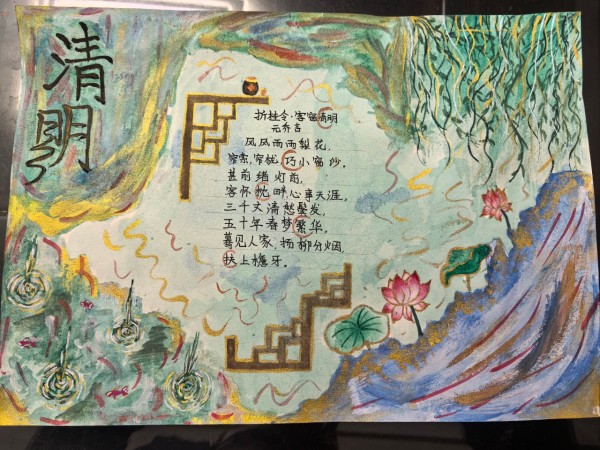 清明
折桂令·客窗清明
元乔吉
风风雨雨梨花,
窄索帘栊,巧小窗纱。
甚绪灯前,
客怀枕畔心事天涯,
三千丈清愁鬓发,
五十年春梦繁华。
蓦见人家,杨柳分烟,
扶上檐牙。